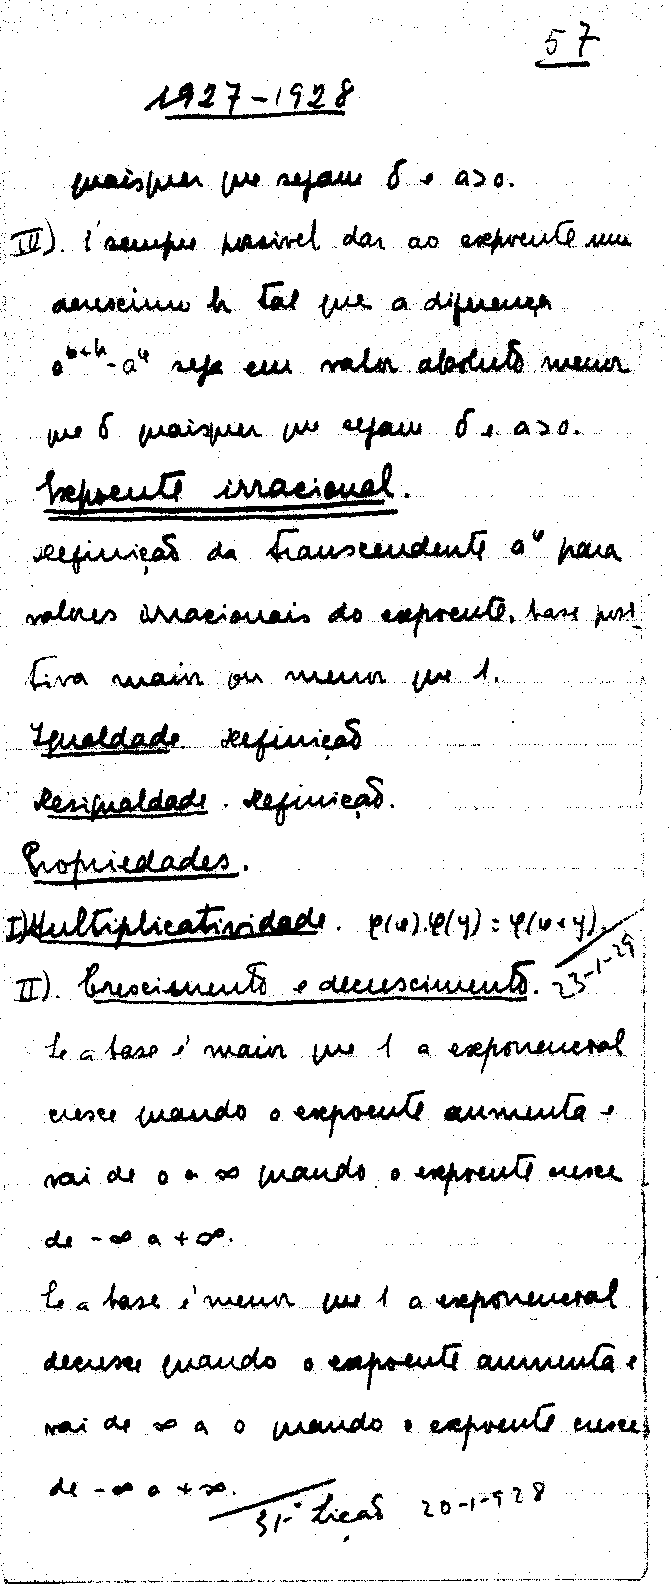 57
1927-1928
quaisquer que sejam δ e a>0.
III). É sempre possivel dar ao expoente um
acrescimo h tal que a diferença
a^{x+h}-a^x seja em valor absoluto menor
que δ quaisquer que sejam δ e a>0.
Expoente irracional.
Definição da transcendente a^x para
valores irracionais do expoente, base posi
tiva maior ou menor que 1.
Igualdade Definição
Desigualdade. Definição.
Propriedades.
I) Multiplicatividade. φ(x).φ(y)=φ(x+y).
23-1-29
II). Crescimento e decrescimento.
Se a base é maior que 1 a exponencial
cresce quando o expoente aumenta e
vai de 0 a ∞ quando o expoente cresce
de -∞ a +∞.
Se a base é menor que 1 a exponencial
decresce quando o expoente aumenta e
vai de ∞ a 0 quando o expoente cresce
de -∞ a +∞.
31-ª Lição 20-1-928